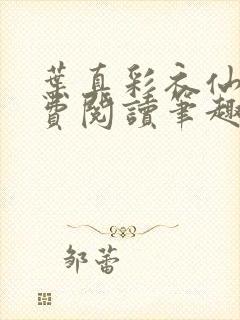 葉真彩衣仙
費閱讀筆趣
邹蕾